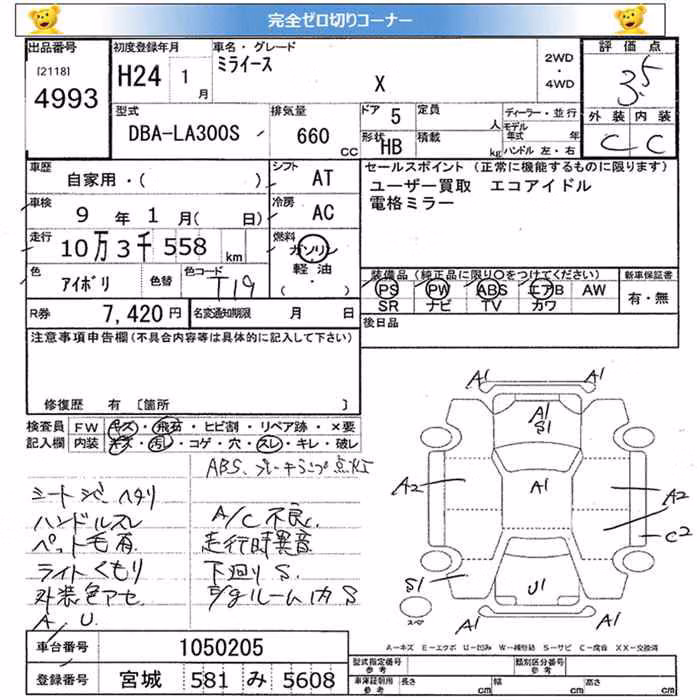 完全ゼロ切りコーナー
出品番号
[2118]
4993
初度登録年月
H24 1月
車名・グレード
ミライース
X
2WD
・
4WD
評価点
3.5
外装 内装
C C
型式
DBA-LA300S
排気量
660 CC
ドア 5
定員 人
形状 HB
積載 kg
ディーラー・並行
モデル
年式 年
ハンドル 左・右
車歴
自家用・( )
シフト
AT
車検
9 年 1 月( 日)
冷房
AC
走行
10万3千558 km
燃料
ガソリン
軽油
( ・ )
色
アイボリ
色替
色コード
T19
セールスポイント (正常に機能するものに限ります)
ユーザー買取 エコアイドル
電格ミラー
装備品 (純正品に限り○をつけてください)
PS PW ABS エアB AW
SR ナビ TV カワ
新車保証書
有・無
R券 7,420円
名変通知期限 月 日
後日品
注意事項申告欄(不具合内容等は具体的に記入して下さい)
修復歴 有 [箇所 ]
検査員
記入欄
FW キズ・飛石・ヒビ割・リペア跡・×要
内装 キズ・汚レ・コゲ・穴・スレ・キレ・破レ
ABS、ブレーキランプ点灯
シートシワ ヘタリ
ハンドルスレ
ペット毛有
ライトくもり
外装色アセ
A、U
A/C不良
走行時異音
下廻りS
E/gルーム内S
A1 A1
A1
S1
A2 A1 A2
C2
S1 U1
A1 A1
スペア
A-キズ E-エクボ U-凹み W-補修跡 S-サビ C-腐食 XX-交換済
車台番号 1050205
登録番号 宮城 581 み 5608
型式指定番号
参考
類別区分番号
参考
車庫証明用
参考
長さ cm
幅 cm
高さ cm